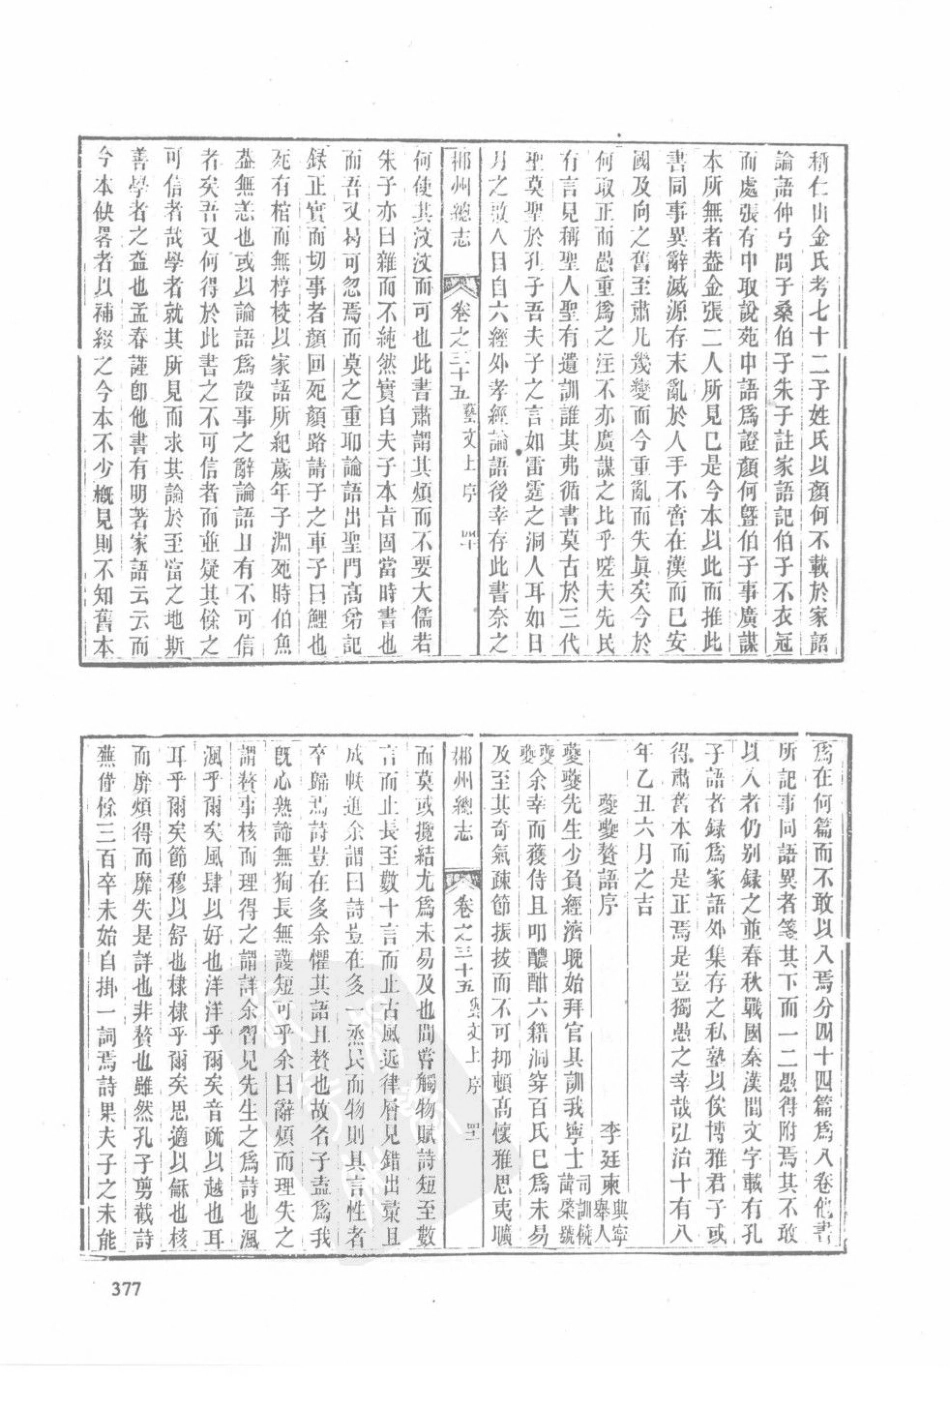 稱仁山金氏考七十二子姓氏以顏何不載於家語
論語仲弓問子桑伯子朱子註家語記伯子不衣冠
而處張有中取說苑中語爲證顏何曁伯子事廣謀
本所無者葢金張二人所見已是今本以此而推此
書同事異辭滅源存末亂於人手不啻在漢而已安
國及向之舊至肅凡幾變而今重亂而失眞矣今於
何取正而愚重爲之注不亦廣謀之比乎嗟夫先民
有言見稱聖人聖有遺訓誰其弗循書莫古於三代
聖莫聖於孔子吾夫子之言如雷霆之洞人耳如日
月之啟人目自六經外孝經論語後幸存此書奈之
郴州總志 卷之三十五 藝文上 序 四十
何使其汶汶而可也此書肅謂其煩而不要大儒若
朱子亦曰雜而不純然實自夫子本旨固當時書也
而吾又曷可忽焉而莫之重耶論語出聖門高弟記
錄正實而切事者顏回死顏路請子之車子曰鯉也
死有棺而無椁校以家語所紀歲年子淵死時伯魚
葢無恙也或以論語爲設事之辭論語且有不可信
者矣吾又何得於此書之不可信者而並疑其餘之
可信者哉學者就其所見而求其論於至當之地斯
善學者之益也孟春謹卽他書有明著家語云云而
今本缺畧者以補綴之今本不少槪見則不知舊本
爲在何篇而不敢以入焉分四十四篇爲八卷他書
所記事同語異者箋其下而一二愚得附焉其不敢
以入者仍别録之並春秋戰國秦漢間文字載有孔
子語者録爲家語外集存之私塾以俟博雅君子或
得肅舊本而是正焉是豈獨愚之幸哉弘治十有八
年乙丑六月之吉
夔夔贅語序 李廷柬 興寧舉人
夔夔先生少負經濟晚始拜官具訓我寧士 司訓候蕳棨號
夔夔 余幸而獲侍且叩醲酣六籍洞穿百氏巳爲未易
及至其奇氣疎節振拔而不可抑頓高懷雅思夷曠
郴州總志 卷之三十五 藝文上 序 四一
而莫或攬結尤爲未易及也間嘗觸物賦詩短至數
言而止長至數十言而止古風近律層見錯出藁且
成帙進余謂曰詩豈在多一烝民而物則具言性者
卒歸焉詩豈在多余懼其語且贅也故名子盍爲我
旣心熟諦無狥長無護短可乎余曰辭煩而理失之
謂贅事核而理得之謂詳余習見先生之爲詩也渢
渢乎爾矣風肆以好也洋洋乎爾矣音疏以越也耳
耳乎爾矣節穆以舒也棣棣乎爾矣思適以龢也核
而靡煩得而靡失是詳也非贅也雖然孔子剪截詩
蕪僅餘三百卒未始自掛一詞焉詩果夫子之未能
377